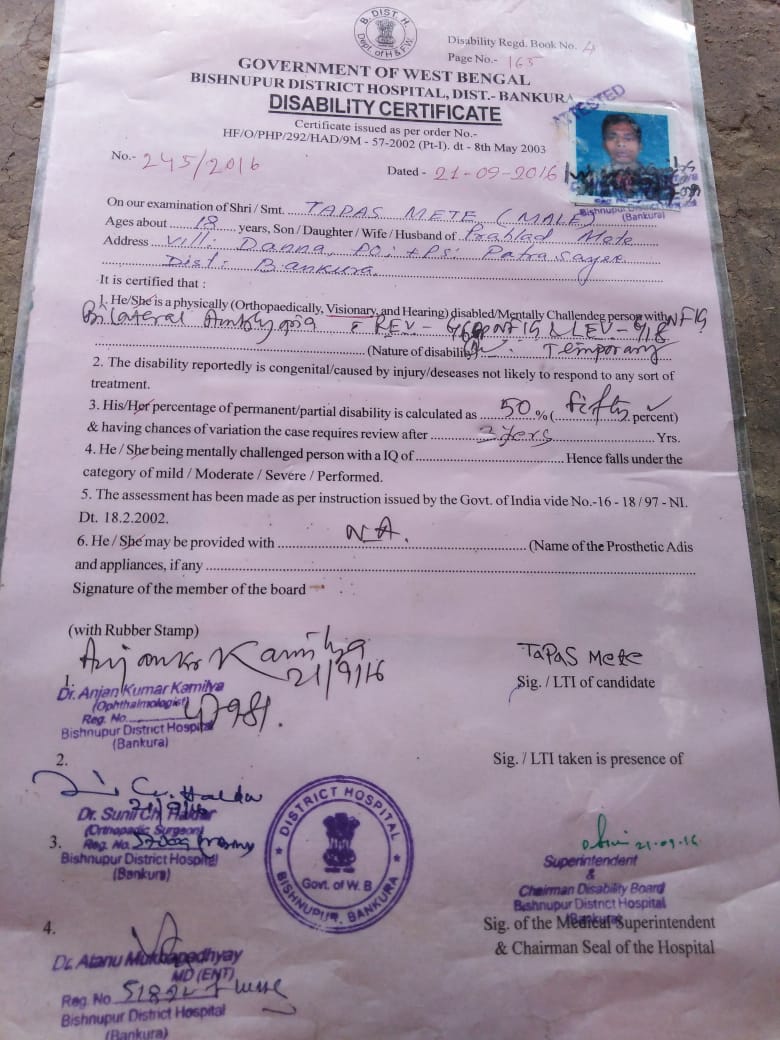 B. DIST. H.
Dept. of H & F.W.
Disability Regd. Book No. 4
Page No.- 165
GOVERNMENT OF WEST BENGAL
BISHNUPUR DISTRICT HOSPITAL, DIST.- BANKURA
DISABILITY CERTIFICATE
ATTESTED
Certificate issued as per order No.-
HF/O/PHP/292/HAD/9M - 57-2002 (Pt-I). dt - 8th May 2003
No.- 245/2016
Dated - 21-09-2016
Bishnupur District
(Bankura)
On our examination of Shri / Smt. TAPAS METE (MALE)
Ages about 18 years, Son / Daughter / Wife / Husband of Prahlad Mete
Address Vill: Danna, PO: + PS: Patrasayer
Dist: Bankura.
It is certified that :
1. He/She is a physically (Orthopaedically, Visionary, and Hearing) disabled/Mentally Challendeg person with
Bilateral Amblyopia REV - LEV - 6/18
(Nature of disability). Temporary
2. The disability reportedly is congenital/caused by injury/deseases not likely to respond to any sort of
treatment.
3. His/Her percentage of permanent/partial disability is calculated as 50 % ( fifty percent)
& having chances of variation the case requires review after Yrs.
4. He / She being mentally challenged person with a IQ of Hence falls under the
category of mild / Moderate / Severe / Performed.
5. The assessment has been made as per instruction issued by the Govt. of India vide No.-16 - 18 / 97 - NI.
Dt. 18.2.2002.
6. He / She may be provided with N.A. (Name of the Prosthetic Adis
and appliances, if any
Signature of the member of the board
(with Rubber Stamp)
Anjan Kr Kamilya
21/9/16
1.
Dr. Anjan Kumar Kamilya
(Ophthalmologist)
Reg. No.
Bishnupur District Hospital
(Bankura)
TaPaS Mete
Sig. / LTI of candidate
2.
Sig. / LTI taken is presence of
Dr. Sunil Ch. Haldar
(Orthopadic Surgeon)
3. Reg. No.
Bishnupur District Hospital
(Bankura)
DISTRICT HOSPITAL
Govt. of W.B
BISHNUPUR, BANKURA
21-09-16
Superintendent
&
Chairman Disability Board
Bishnupur District Hospital
(Bankura)
Sig. of the Medical Superintendent
& Chairman Seal of the Hospital
4.
Dr. Atanu Mukhopadhyay
MD (ENT)
Reg. No.
Bishnupur District Hospital
(Bankura)